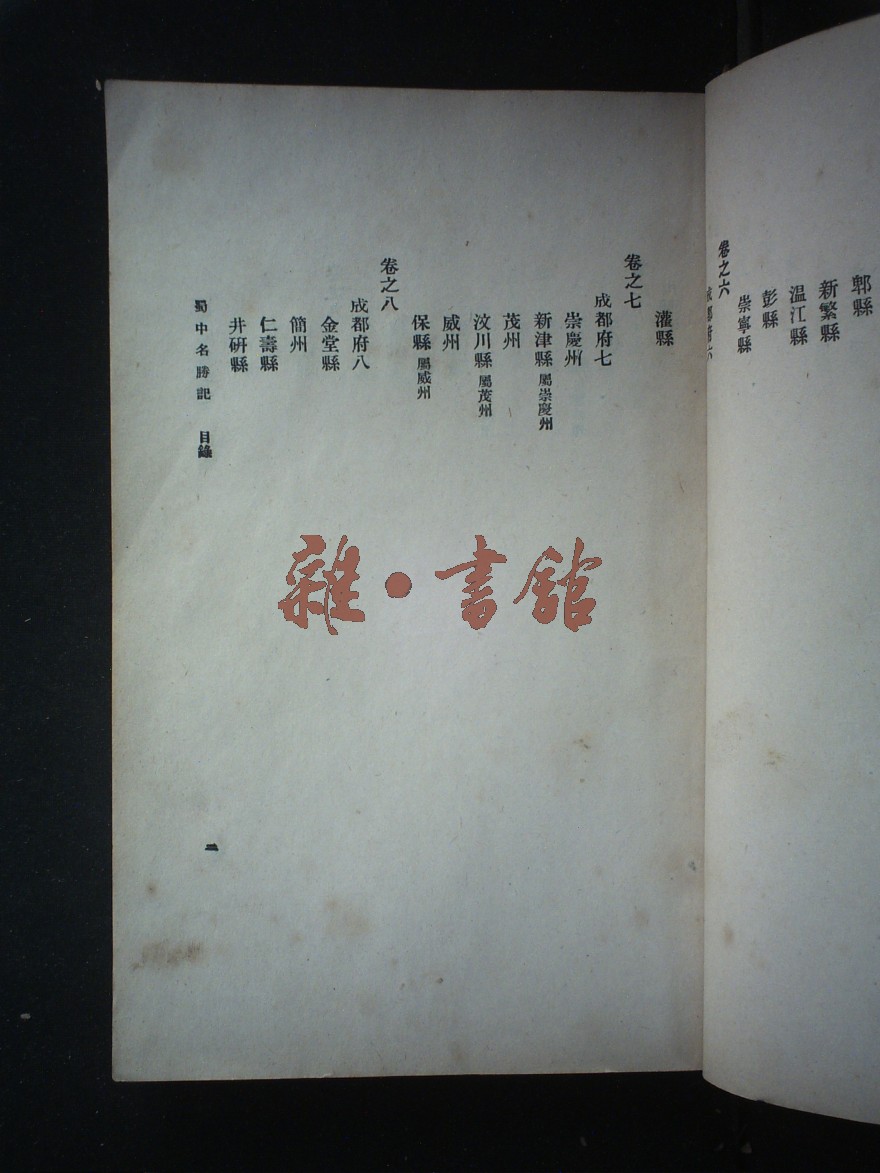 郫縣
新繁縣
温江縣
彭縣
崇寧縣
卷之六
成都府六
灌縣
卷之七
成都府七
崇慶州
新津縣 屬崇慶州
茂州
汶川縣 屬茂州
威州
保縣 屬威州
卷之八
成都府八
金堂縣
簡州
仁壽縣
井研縣
蜀中名勝記 目錄
二
雜·書館